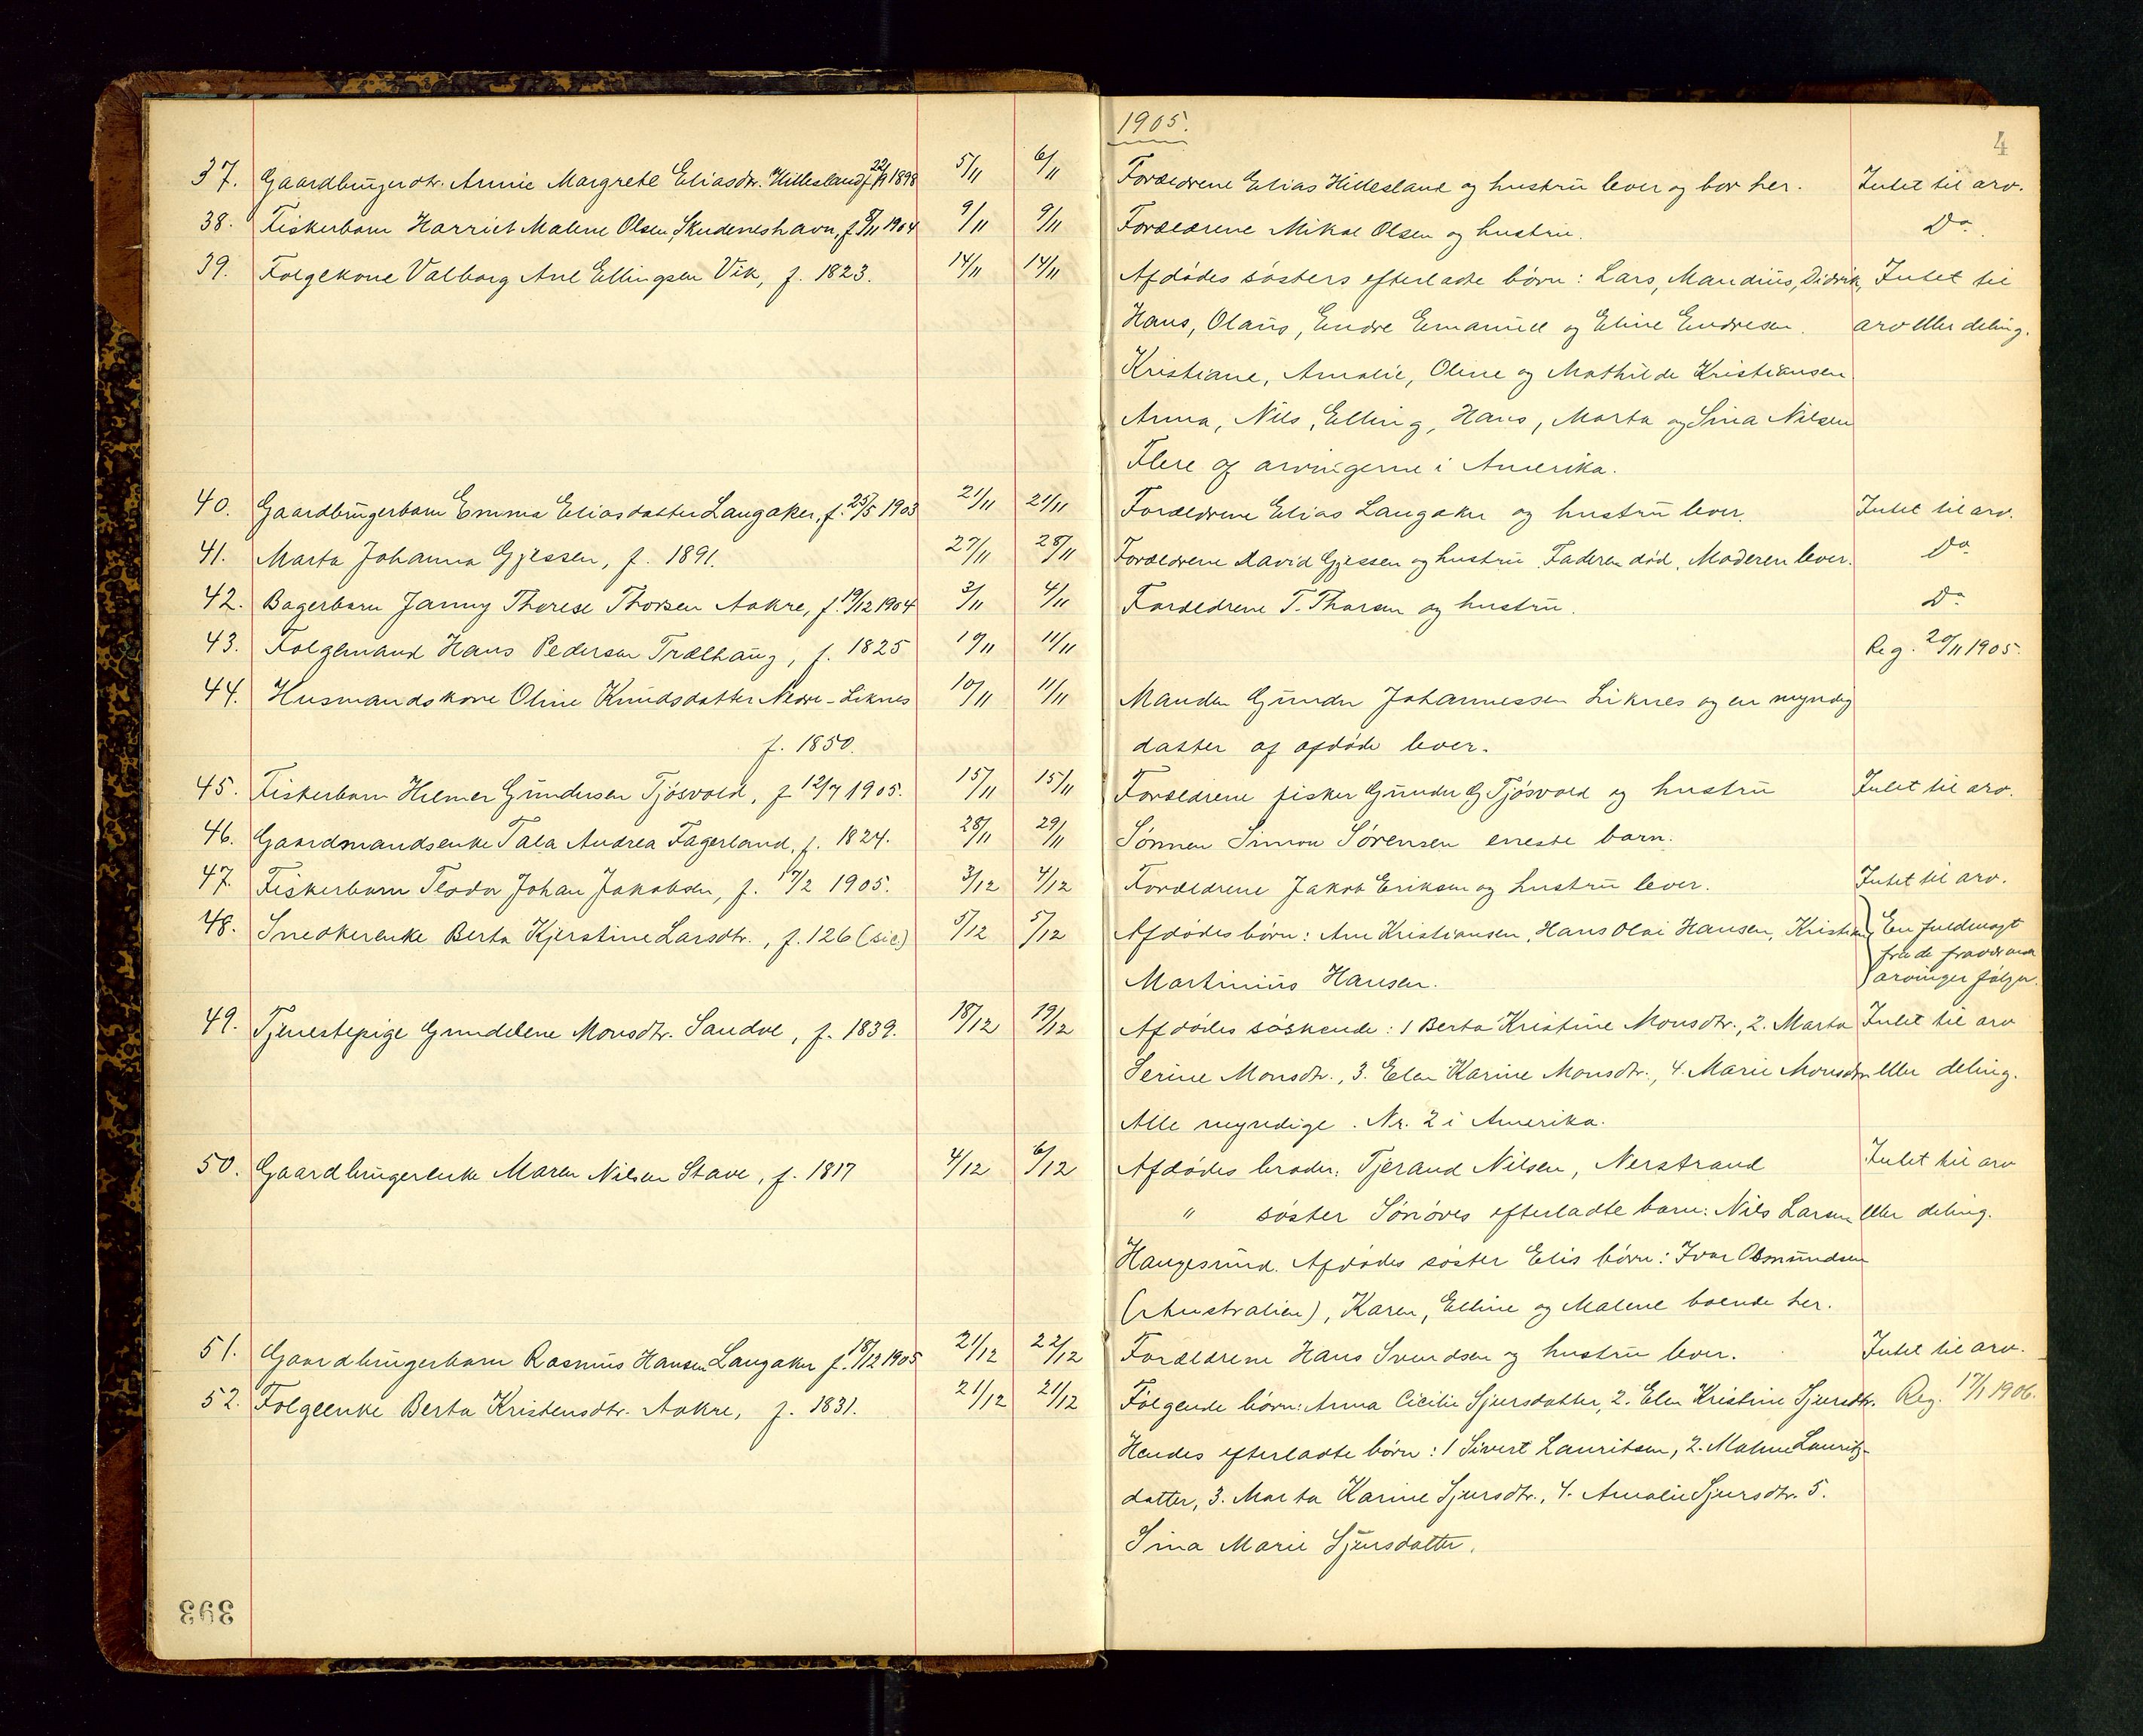 1905.
4
37. Gaardbrugerdtr. Annie Margrete Eliasdtr. Hillesland f. 1898 5/11 6/11 Forældrene Elias Hillesland og hustru lever og bor her. Intet til arv.
38. Fiskerbarn Harriet Malene Olsen, Skudeneshavn, f. 8/11 1904 9/11 9/11 Forældrene Mikal Olsen og hustru. Do.
39. Folgekone Valborg Ane Ellingsen Vik, f. 1823. 14/11 14/11 Afdødes søsters efterladte børn: Lars, Mandius, Didrik, Intet til
Hans, Olaus, Endre Emanuel og Eline Endresen. arv eller deling.
Kristiane, Amalie, Oline og Mathilde Kristiansen
Anna, Nils, Elling, Hans, Marta og Sina Nilsen
Flere af arvingerne i Amerika.
40. Gaardbrugerbarn Emma Eliasdatter Langaker, f. 25/5 1903 21/11 21/11 Forældrene Elias Langaker og hustru lever. Intet til arv.
41. Marta Johanna Gjessen, f. 1891. 27/11 28/11 Forældrene David Gjessen og hustru. Faderen død, Moderen lever. Do
42. Bagerbarn Janny Therese Thorsen Aakre, f. 19/12 1904 3/11 4/11 Forældrene T. Thorsen og hustru. Do
43. Folgemand Hans Pedersen Trælhaug, f. 1825 10/11 11/11 Reg. 20/11 1905.
44. Husmandskone Oline Knudsdatter Nedre-Liknes 10/11 11/11 Manden Gunder Johannessen Liknes og en myndig
f. 1850. datter af afdøde lever.
45. Fiskerbarn Hilmer Gundersen Tjøsvold, f 12/7 1905. 15/11 15/11 Forældrene fisker Gunder G Tjøsvold og hustru Intet til arv.
46. Gaardmandsenke Tala Andrea Fagerland, f. 1824. 28/11 29/11 Sønnen Simon Sørensen eneste barn.
47. Fiskerbarn Teodor Johan Jakobsen, f. 17/2 1905. 3/12 4/12 Forældrene Jakob Eriksen og hustru lever. Intet til arv.
48. Snedkerenke Berta Kjerstine Larsdtr., f. 126 (sic) 5/12 5/12 Afdødes børn: Ane Kristiansen, Hans Olai Hansen, Kristian, En fuldmagt
fra de fraværende
Martinius Hansen. arvinger følger.
49. Tjenestepige Gundelene Monsdtr. Sandve, f. 1839. 18/12 19/12 Afdødes søskende: 1 Berta Kristine Monsdtr., 2. Marta Intet til arv
Serine Monsdtr., 3. Elen Karine Monsdtr., 4. Marie Monsdtr. eller deling.
Alle myndige. Nr. 2 i Amerika.
50. Gaardbrugerenke Maren Nilsen Stave, f. 1817 4/12 6/12 Afdødes broder: Tjerand Nilsen, Nerstrand Intet til arv
" søster Sønøves efterladte barn: Nils Larsen eller deling.
Haugesund. Afdødes søster Elis børn: Ivar Osmundsen
(Australien), Karen, Elline og Malene boende her.
51. Gaardbrugerbarn Rasmus Hansen Langaker f. 18/12 1905 21/12 22/12 Forældrene Hans Svendsen og hustru lever. Intet til arv.
52. Folgeenke Berta Kristensdtr. Aakre, f. 1831. 21/12 21/12 Følgende børn: Anna Cicilie Sjursdatter, 2. Elen Kristine Sjursdtr. Reg. 17/1 1906.
Hendes efterladte børn: 1 Sivert Lauritsen, 2. Malene Lauritz-
datter, 3. Marta Karine Sjursdtr., 4. Amalie Sjursdtr. 5.
Sina Marie Sjursdatter.
393